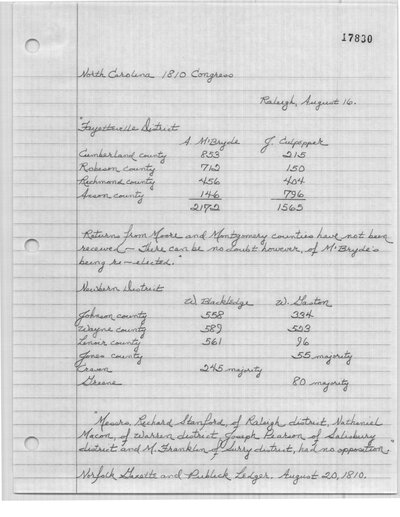 17830
North Carolina 1810 Congress
Raleigh, August 16.
"Fayetteville District
A. McBryde J. Culpepper
Cumberland county 853 215
Robeson county 712 150
Richmond county 456 404
Anson county 146 796
2172 1565
Returns from Moore and Montgomery counties have not been
received – There can be no doubt however, of McBryde's
being re-elected."
Newbern District
W. Blackledge W. Gaston
Johnson county 558 334
Wayne county 589
Lenoir county 561 96
Jones county 55 majority
Craven 245 majority
Greene 80 majority
"Messrs. Richard Stanford, of Raleigh district, Nathaniel
Macon, of Warren district, Joseph Pearson of Salisbury
district and M. Franklin of Surry district, had no opposition."
Norfolk Gazette and Publick Ledger. August 20, 1810.